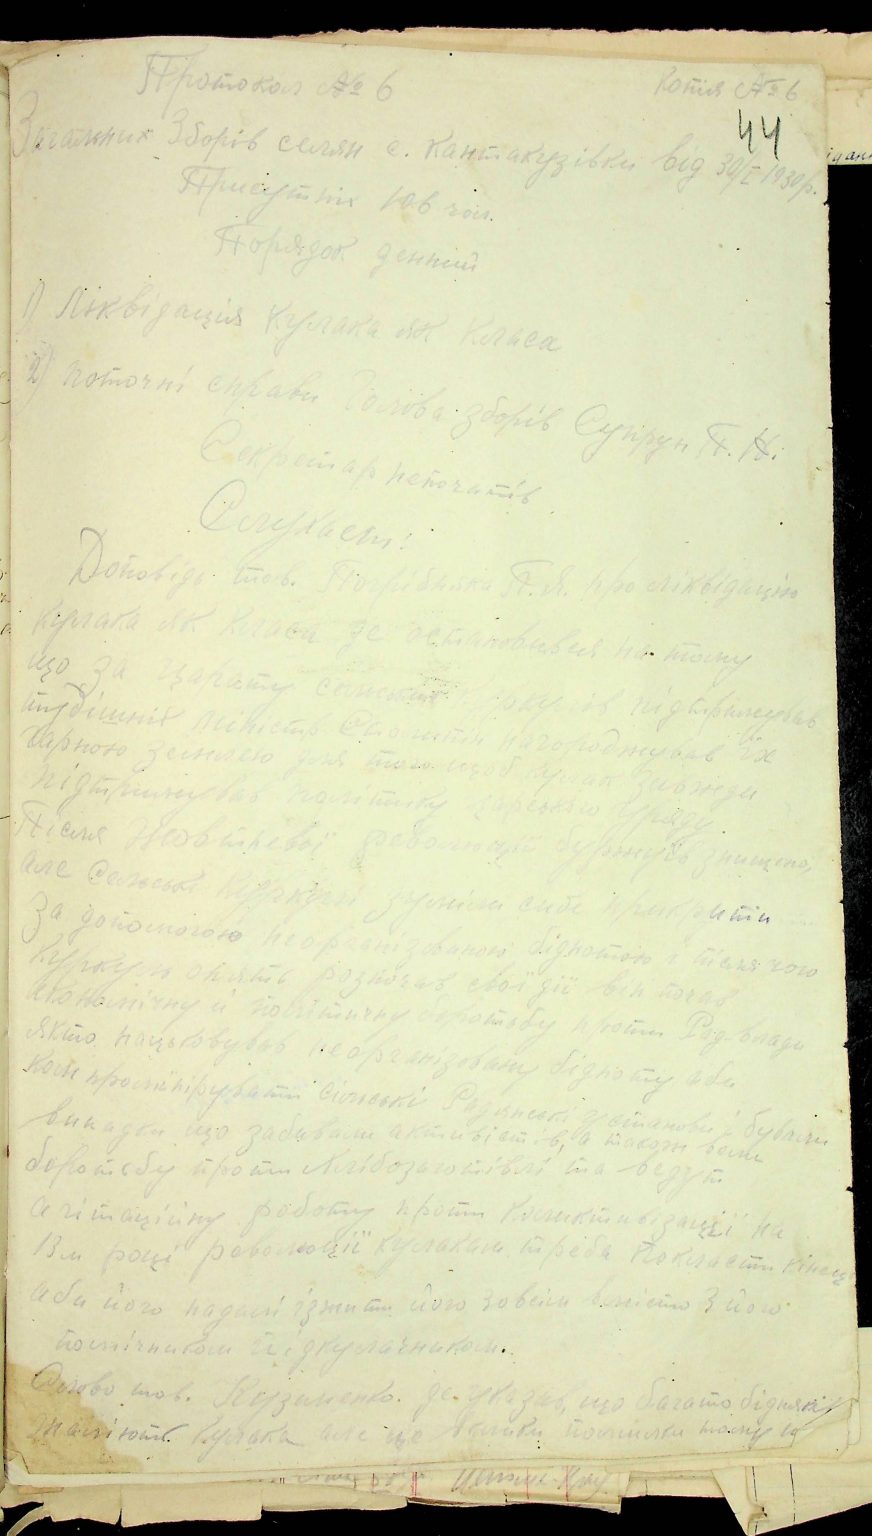 Протокол № 6
Копія № 6
44
Загальних Зборів селян с. Кантакузівки від 30/I 1930 р.
Присутніх 106 чол.
Порядок денний
1) Ліквідація Кулака як Класа
2) поточні справи Голова зборів Супрун П. Н.
Секретар Непочатів
Слухали:
Доповідь тов. Погрібняка П. Я. про ліквідацію
кулака як класа де остановився на тому
що за царату сельских куркулів підтримував
тодішній міністр Столипін нагороджував їх
гарною землею для того щоб кулак завжди
підтримував політику царського уряду
Після Жовтневої революції буржуїв знищено,
але сельські Куркулі зуміли себе прикрити
за допомогою неорганізованою біднотою і після чого
Куркуль опять розпочав свої дії він почав
економічну й політичну боротьбу проти Рад-влади
якто нацьковував неорганізовану бідноту аби
компромініруватти Сільські Радянські установи й бували
випадки що забивали активістів, а також вели
боротьбу проти хлібозаготівлі та ведут
агітаційну роботу проти коликтивізації на
13м році революції кулакам треба покласти кінець
аби його надалі ізжити його зовсім вмісто з його
помічником підкулачником.
Слово тов. Кузьменко. де указав, що багато бідняків
жаліють Кулака але це велики помилки тому що